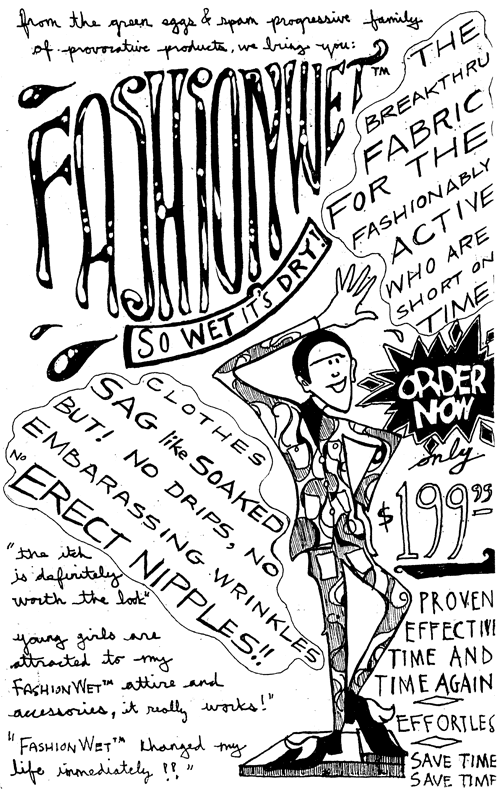 from the green eggs & spam progressive family
of provocative products, we bring you:
FASHIONWET™
SO WET IT'S DRY!
THE
BREAKTHRU
FABRIC
FOR THE
FASHIONABLY
ACTIVE
WHO ARE
SHORT ON
TIME!
ORDER
NOW
only
$199.99
CLOTHES
SAG like SOAKED
BUT! NO DRIPS, NO
EMBARASSING WRINKLES
NO
ERECT NIPPLES!!
"the itch
is definitely
worth the look"
young girls are
attracted to my
FASHIONWET™ attire and
accessories, it really works!"
"FASHIONWET™ khanged my
life immediately !!"
PROVEN
EFFECTIVE
TIME AND
TIME AGAIN
EFFORTLES
SAVE TIME
SAVE TIME